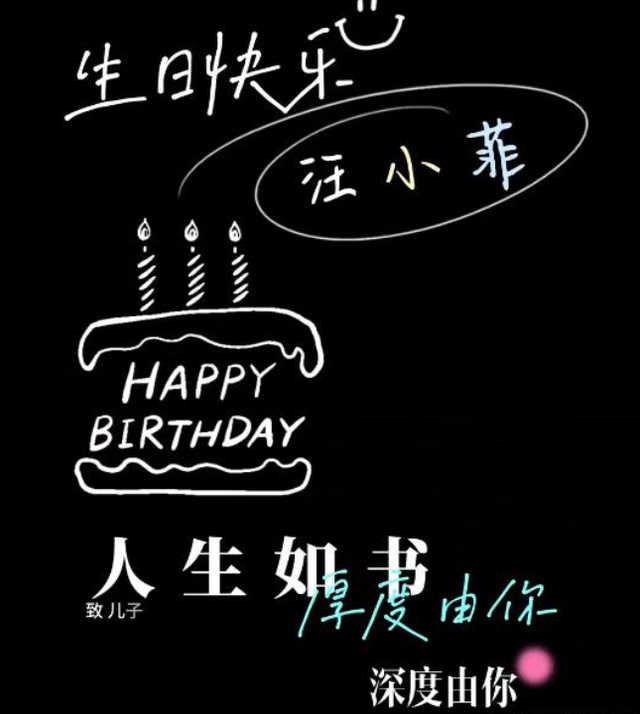 生日快乐
汪小菲
HAPPY
BIRTHDAY
人生如书
致 儿子
厚度由你
深度由你